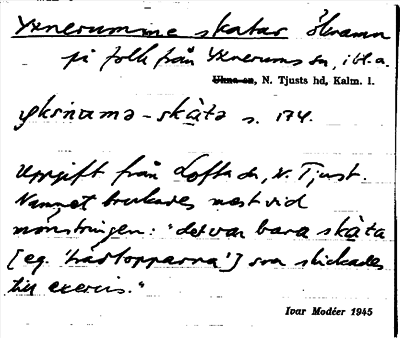 Yxnerumme skatar öknamn
på folk från Yxnerums sn, i bl. a.
Ukna sn, N. Tjusts hd, Kalm. l.
yksnɑmə-skàtə s. 174.
Uppgift från Lofta sn, N. Tjust.
Namnet brukades mest vid
mönstringen: "det var bara skàta
[eg. 'trädtopparna'] som skickades
till exercis."
Ivar Modéer 1945